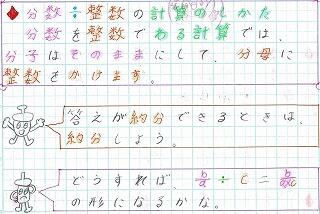 分数÷整数の計算のしかた
分数を整数でわる計算では、
分子はそのままにして、分母に
整数をかけます。
答えが約分できるときは、
約分しよう。
どうすれば、b/a ÷ c = b/a×c
の形になるかな。